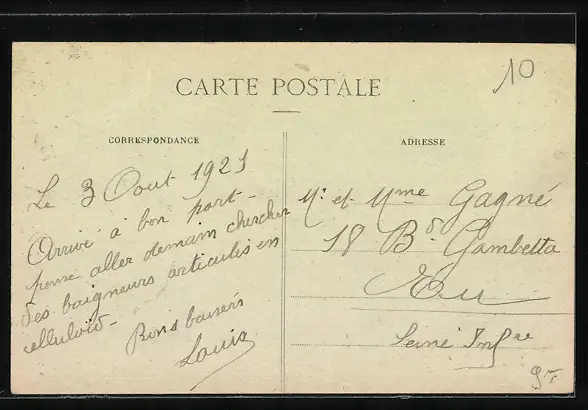 10
CARTE POSTALE
CORRESPONDANCE
Le 3 Aout 1921
Arrivé à bon port -
pense aller demain chercher
des baigneurs articulés en
celluloïd -
Bons baisers
Louis
ADRESSE
Mr et Mme Gagné
18 Bd Gambetta
Eu
Seine Infre